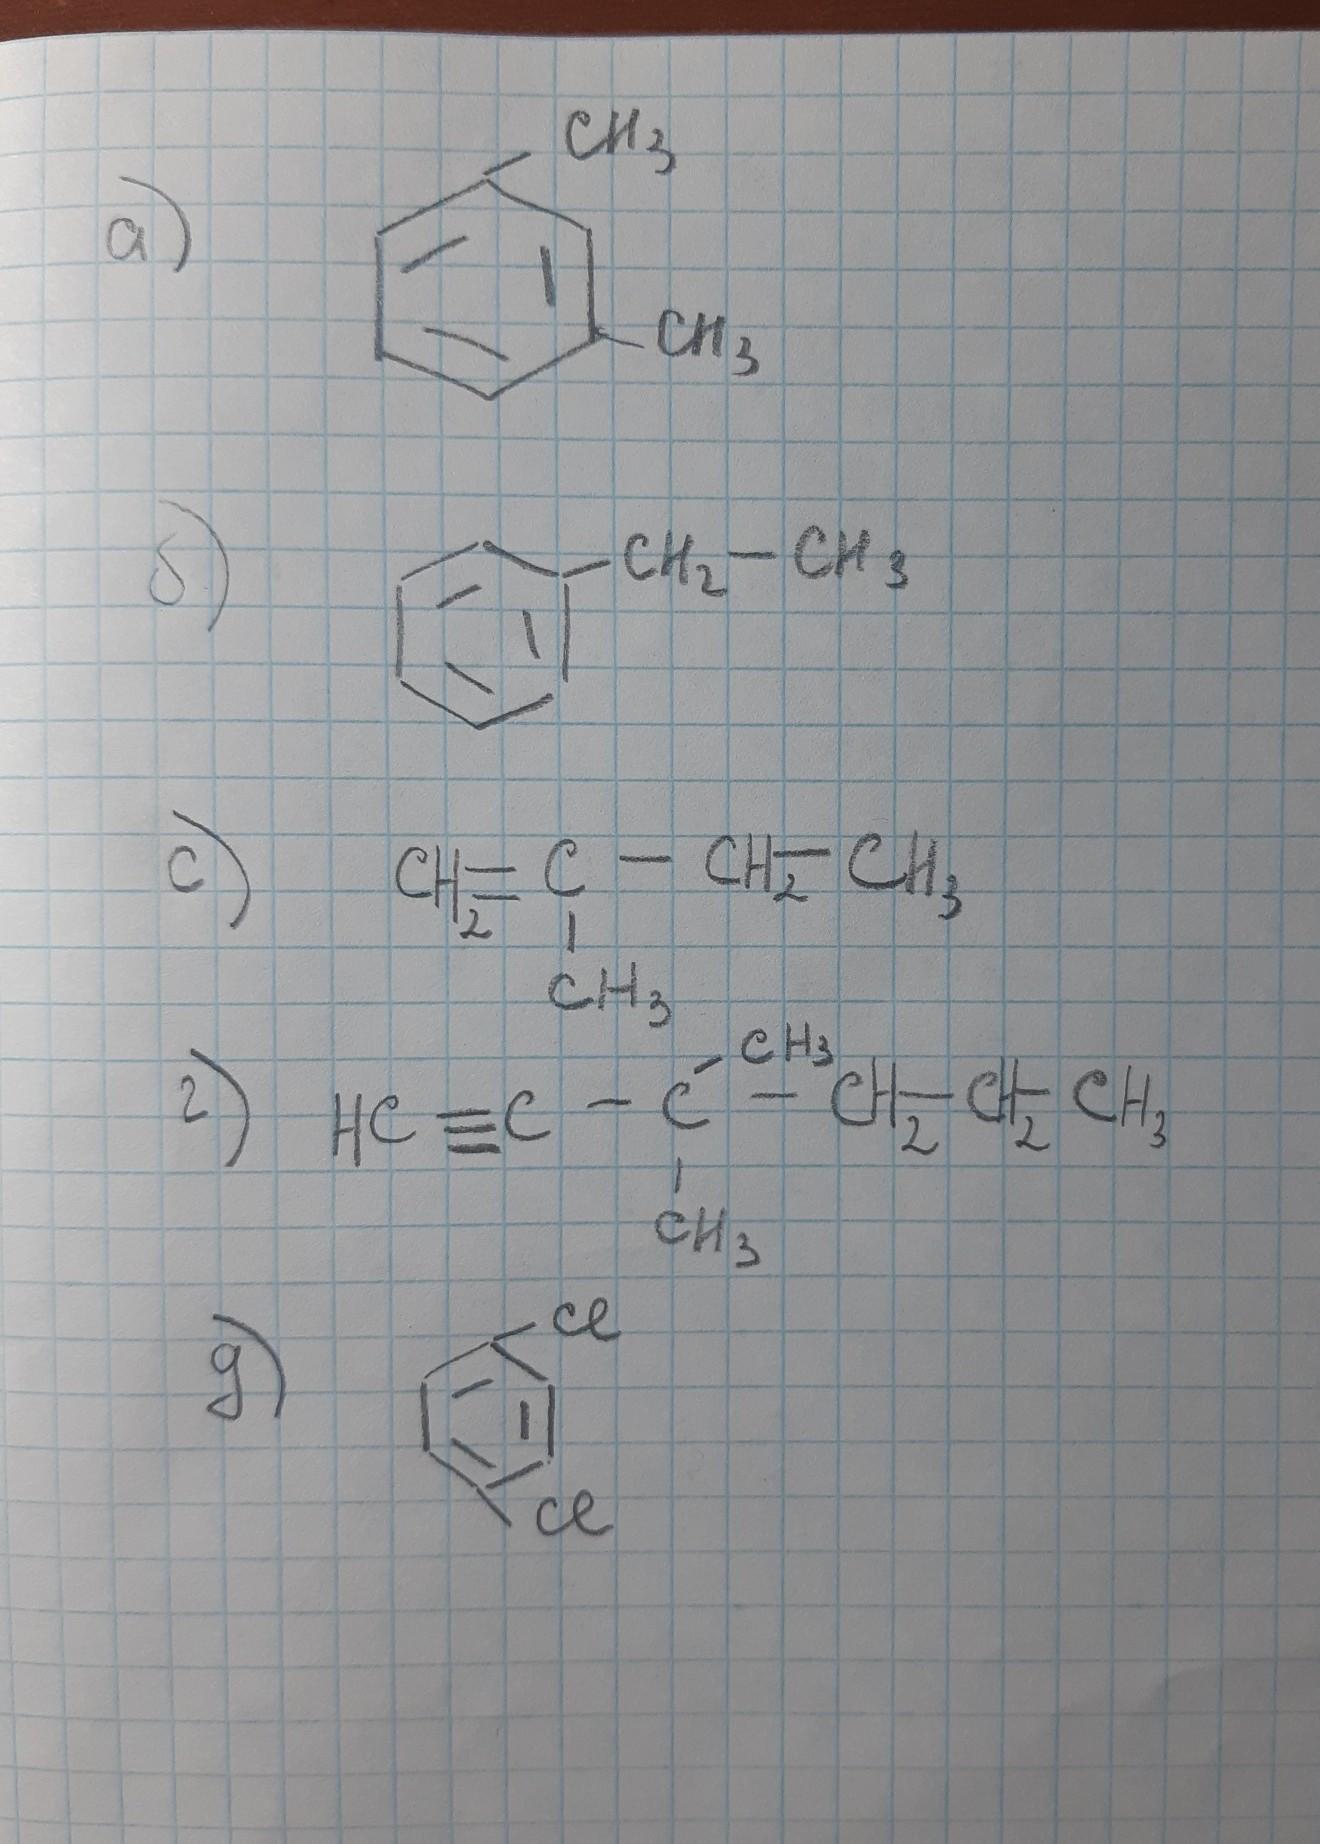 а) CH3
CH3
б) CH2 - CH3
с) CH2 = C - CH2 - CH3
CH3
CH3
г) HC ≡ C - C - CH2 - CH2 - CH3
CH3
Cl
д)
Cl